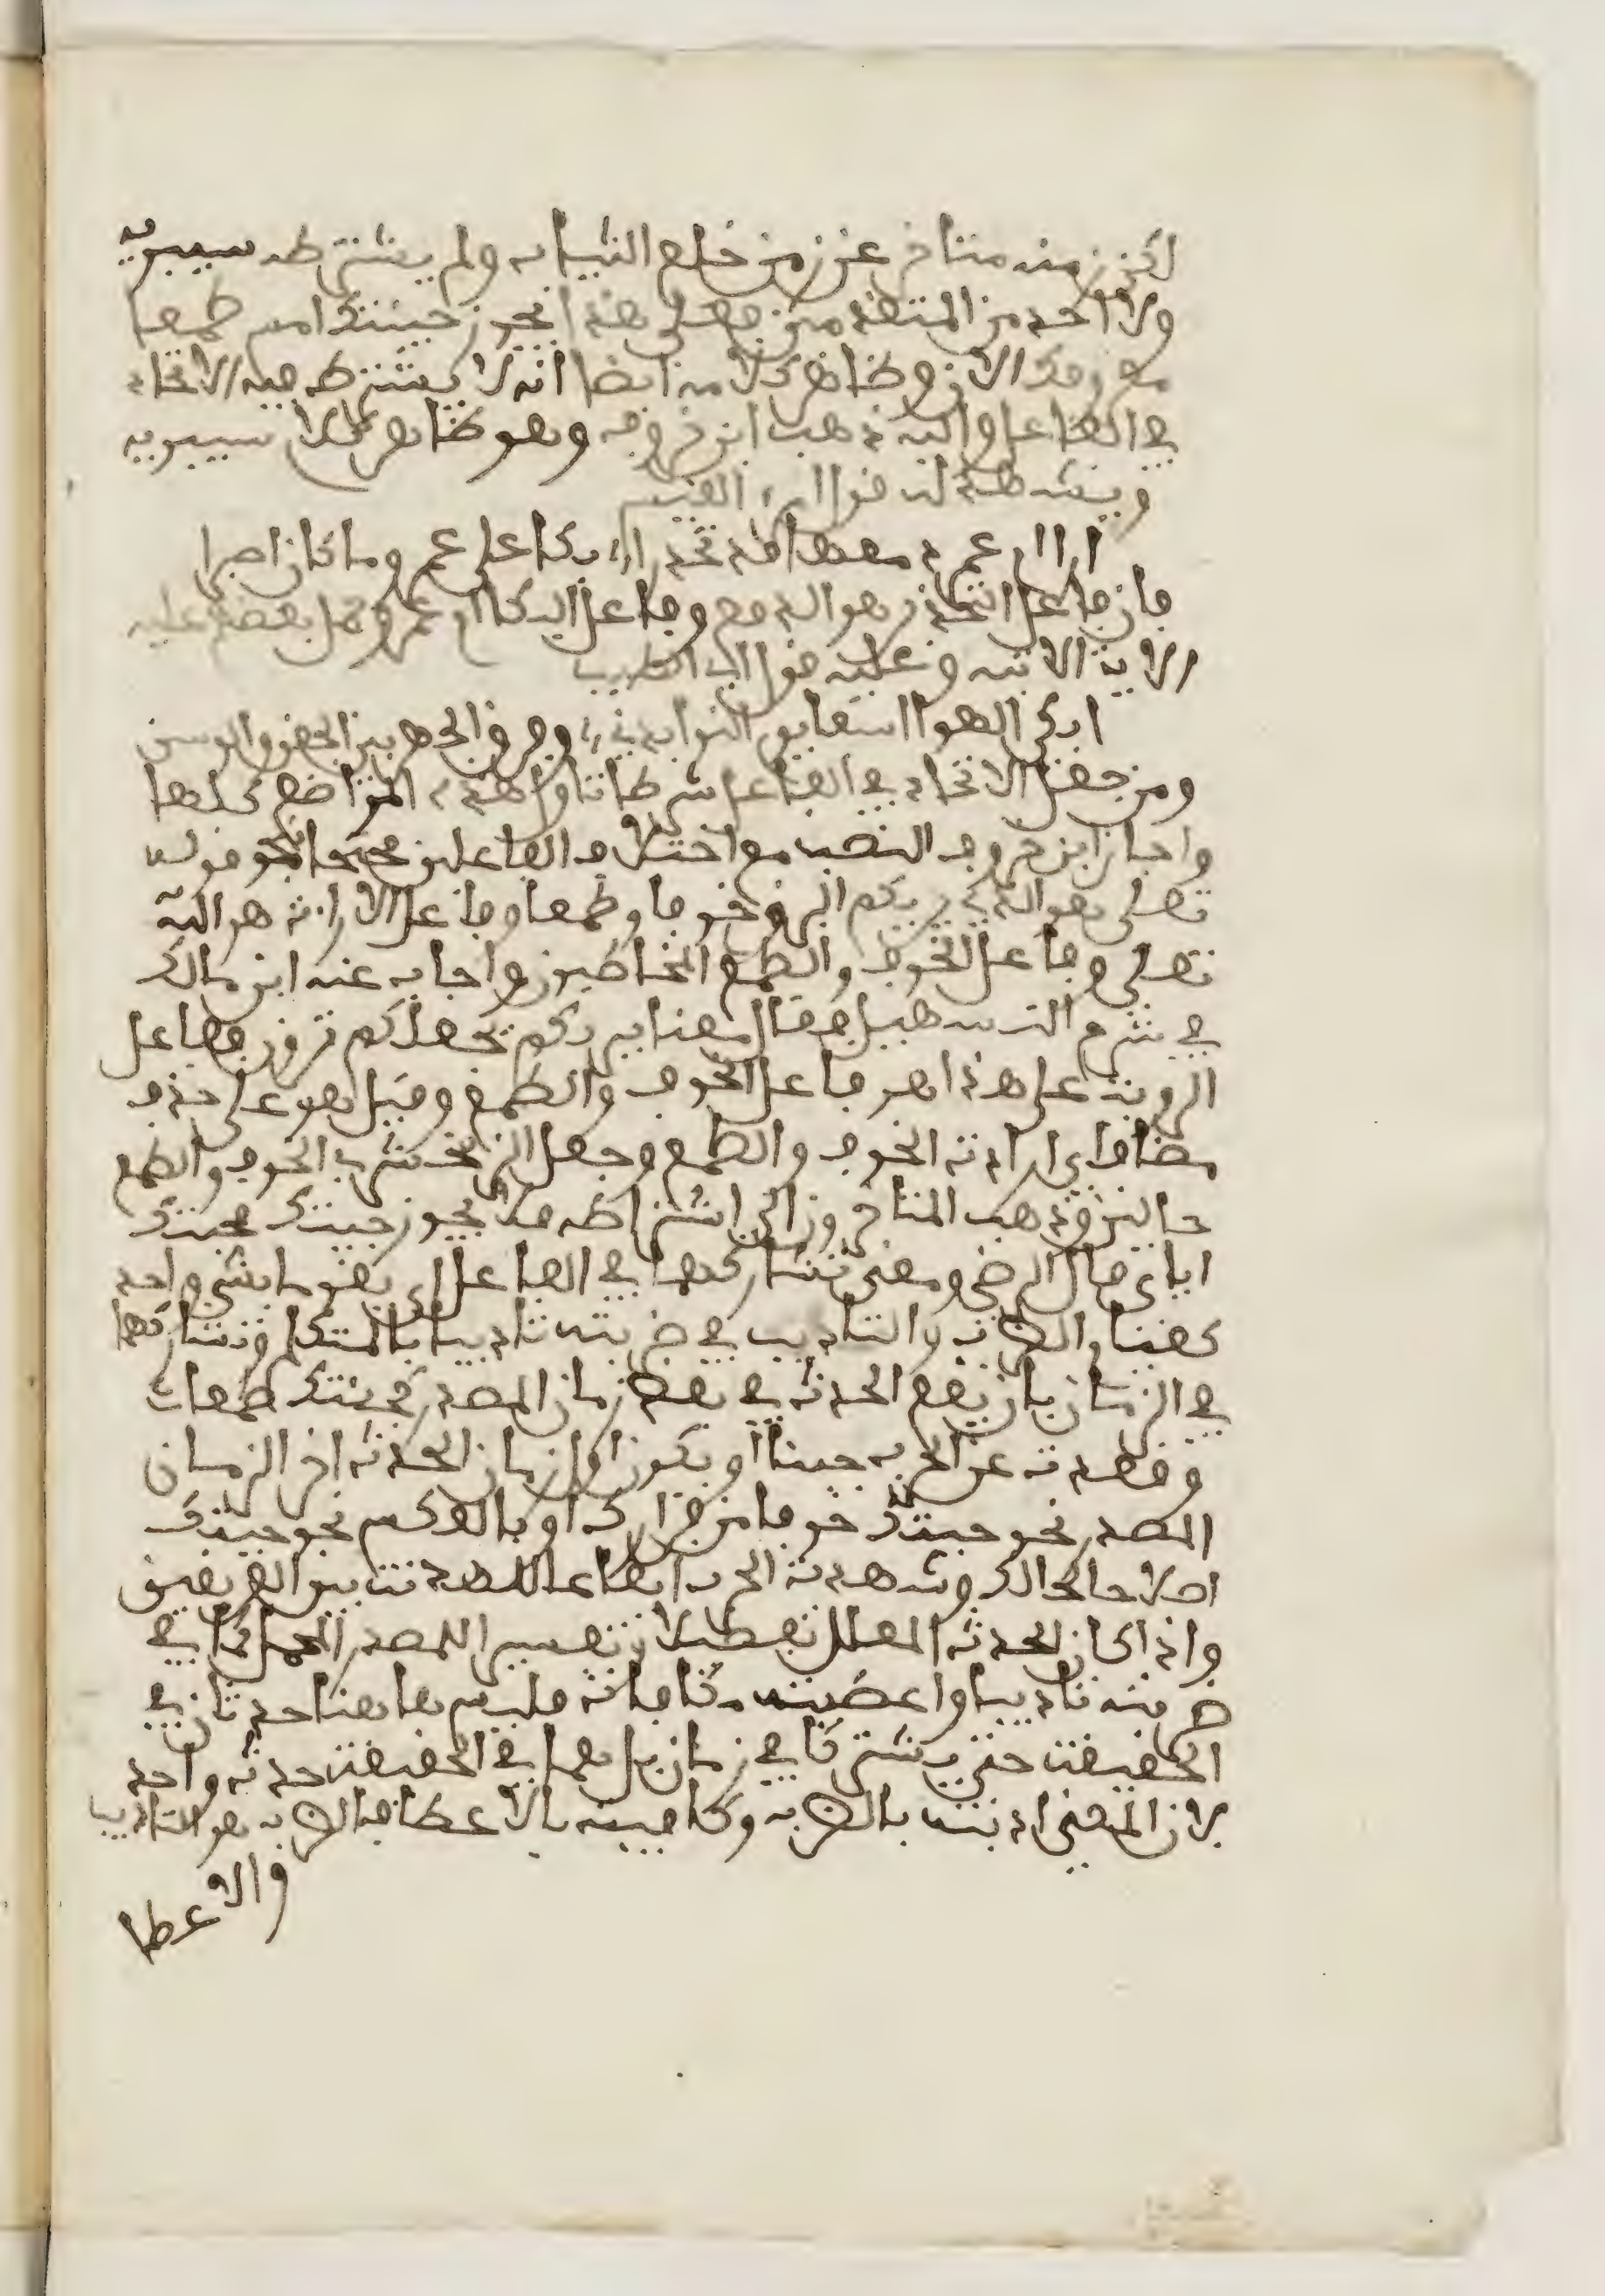 لاكن زمنه متأخر عن زمن خلع الثياب ولم يشترطه سيبويه
ولا احد من المتقدمين فعلى هذا يجوز جيتك امس طمعا
معروفك الان وظاهر كلامه ايضا انه لا يشترط فيه الاتحاد
في الفاعل واليه ذهب ابن خروف وهو ظاهر كلام سيبويه
ويشهد له قول امرء القيس
ارى ام عمرو دمعها قد تحدرا بكا على عمرو وما كان اصبرا
فان فاعل التحدر هو الدمع وفاعل البكا ام عمرو
الاية الاتية وعليه قول ابي الطيب
ابلى الهوى اسفا يوم النوى بدني وفرق الهجر بين الجفن والوسن
ومن جعل الاتحاد في الفاعل شرطا تاول هذه المواضع كلها
واجاز ابن خروف النصب مع اختلاف الفاعلين محتجا بنحو قوله
تعلى هو الذي يريكم البرق خوفا وطمعا وفاعل الاراءة هو الله
تعلى وفاعل الخوف والطمع المخاطبون واجاب عنه ابن مالك
في شرح التسهيل فقال معنا يريكم يجعلكم ترون ففاعل
الروية على هذا هو فاعل الخوف والطمع وقيل هو على حذف
مضاف اي ارادة الخوف والطمع وجعل الزمخشري الخوف والطمع
حالين وذهب المتأخرون الى اشتراطه فلا يجوز جيتك محبتك
اياي قال الرضي ومعنى تشاركهما في الفاعل ان يقوما بشي واحد
كقيام الضرب والتاديب في ضربته تاديبا بالمتكلم وتشاركهما
في الزمان بان يقع الحدث في بعض زمان المصدر كجئتك طمعا
وقعدت عن الحرب جبنا او يكون اول زمان الحدث اخر الزمان
المصدر نحو جيتك خوفا من فرارك او بالعكس نحو جيتك
اصلاحا لحالك وشهدت الحرب ايقاعا للهدنة بين الفريقين
واذا كان الحدث المعلل تفصيلا وتفسيرا للمصدر المجمل كما في
ضربته تاديبا واعطيته مكافاة فليس هاهنا حدثان في
الحقيقة حتى يشتركا في زمان بل هما في الحقيقة حدث واحد
لان المعنى ادبته بالضرب وكافيته بالاعطا فالضرب هو التاديب
والاعطا